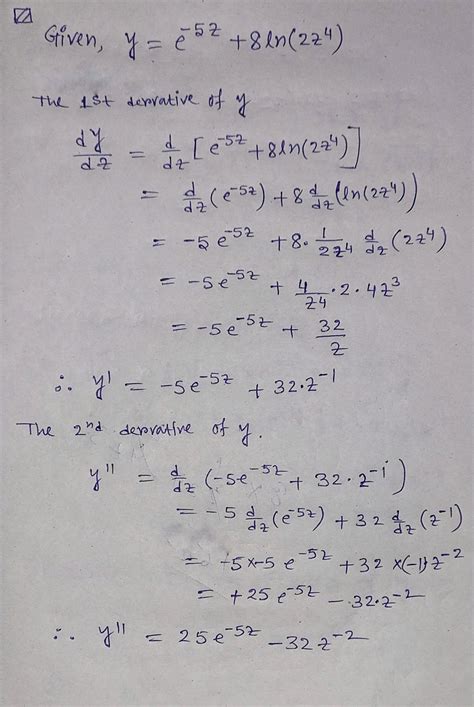 Given, y = e^-5z + 8ln(2z^4)
The 1st derivative of y
dy/dz = d/dz [e^-5z + 8ln(2z^4)]
= d/dz (e^-5z) + 8 d/dz (ln(2z^4))
= -5e^-5z + 8·1/2z^4 d/dz (2z^4)
= -5e^-5z + 4/z^4 · 2·4z^3
= -5e^-5z + 32/z
∴ y' = -5e^-5z + 32·z^-1
The 2nd derivative of y.
y'' = d/dz (-5e^-5z + 32·z^-1)
= -5 d/dz (e^-5z) + 32 d/dz (z^-1)
= -5×-5 e^-5z + 32×(-1)z^-2
= +25 e^-5z - 32·z^-2
∴ y'' = 25e^-5z - 32z^-2